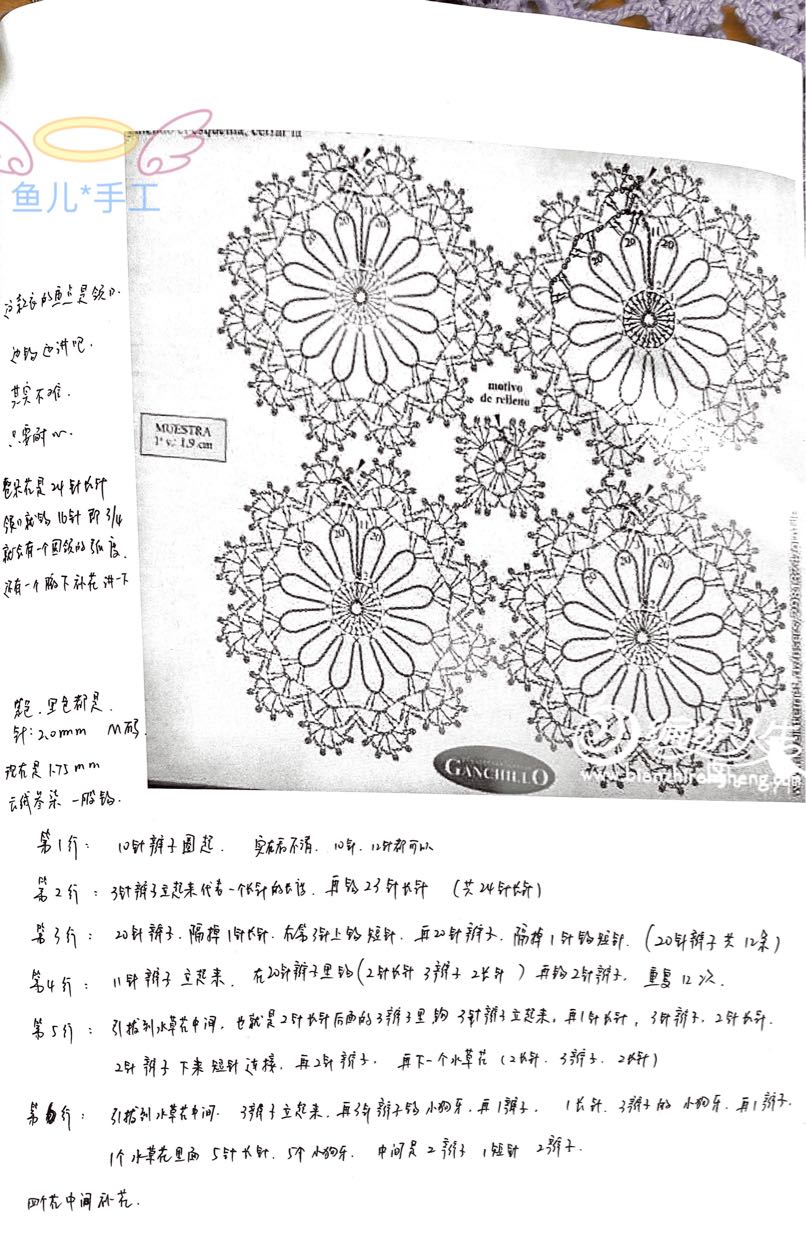 鱼儿*手工
这款衣的重点是领口.
边钩边讲吧.
其实不难.
只要耐心.
整朵花是24针长针
领口就钩16针即3/4
就会有一个圆领的弧度.
还有一个腋下补花讲一下
紫色.里色都是.
针:2.0mm M码.
现在是1.75mm
云线卷染 一股钩.
MUESTRA
1ª v.: 1,9 cm
motivo
de relleno
20
20
11
20
20
20
20
11
20
20
20
20
11
20
20
20
20
11
20
20
GANCHILLO
第1行: 10针辫子圈起. 实在看不清. 10针. 12针都可以
第2行: 3针辫子立起来代表一个长针的长度. 再钩23针长针 (共24针长针)
第3行: 20针辫子.隔掉1针长针.在第3针上钩短针. 再20针辫子. 隔掉1针钩短针. (20针辫子共12条)
第4行: 11针辫子立起来. 在20针辫子里钩(2针长针 3辫子 2长针) 再钩2针辫子. 重复12次.
第5行: 引拔到水草花中间. 也就是2针长针后面的3辫子里钩3针辫子立起来, 再1针长针, 3针辫子. 2针长针.
2针辫子下来短针连接. 再2针辫子. 再下一个水草花(2长针. 3辫子. 2长针)
第6行: 引拔到水草花中间. 3辫子立起来. 再3针辫子钩小狗牙. 再1辫子. 1长针. 3辫子的小狗牙. 再1辫子.
1个水草花里面5针长针. 5个小狗牙. 中间是2辫子1短针2辫子.
四个花中间补花.